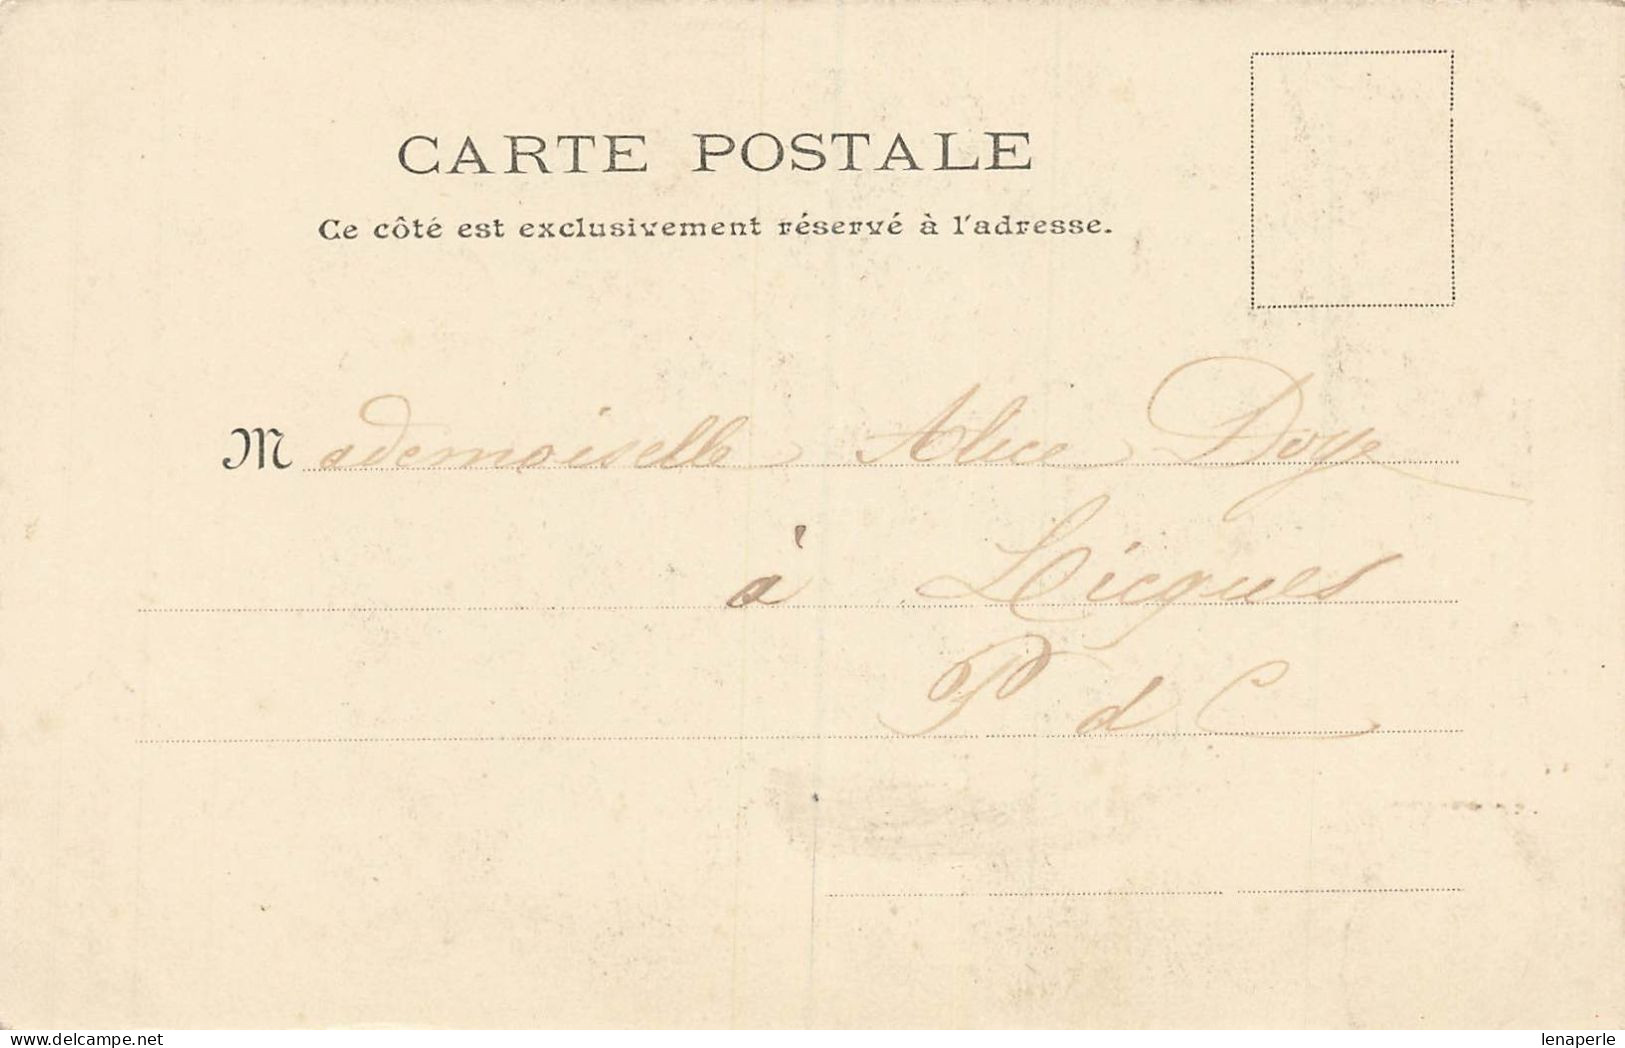 CARTE POSTALE
Ce côté est exclusivement réservé à l'adresse.
Mademoiselle Alice Doye
à Licques
P d C
www.delcampe.net
lenaperle